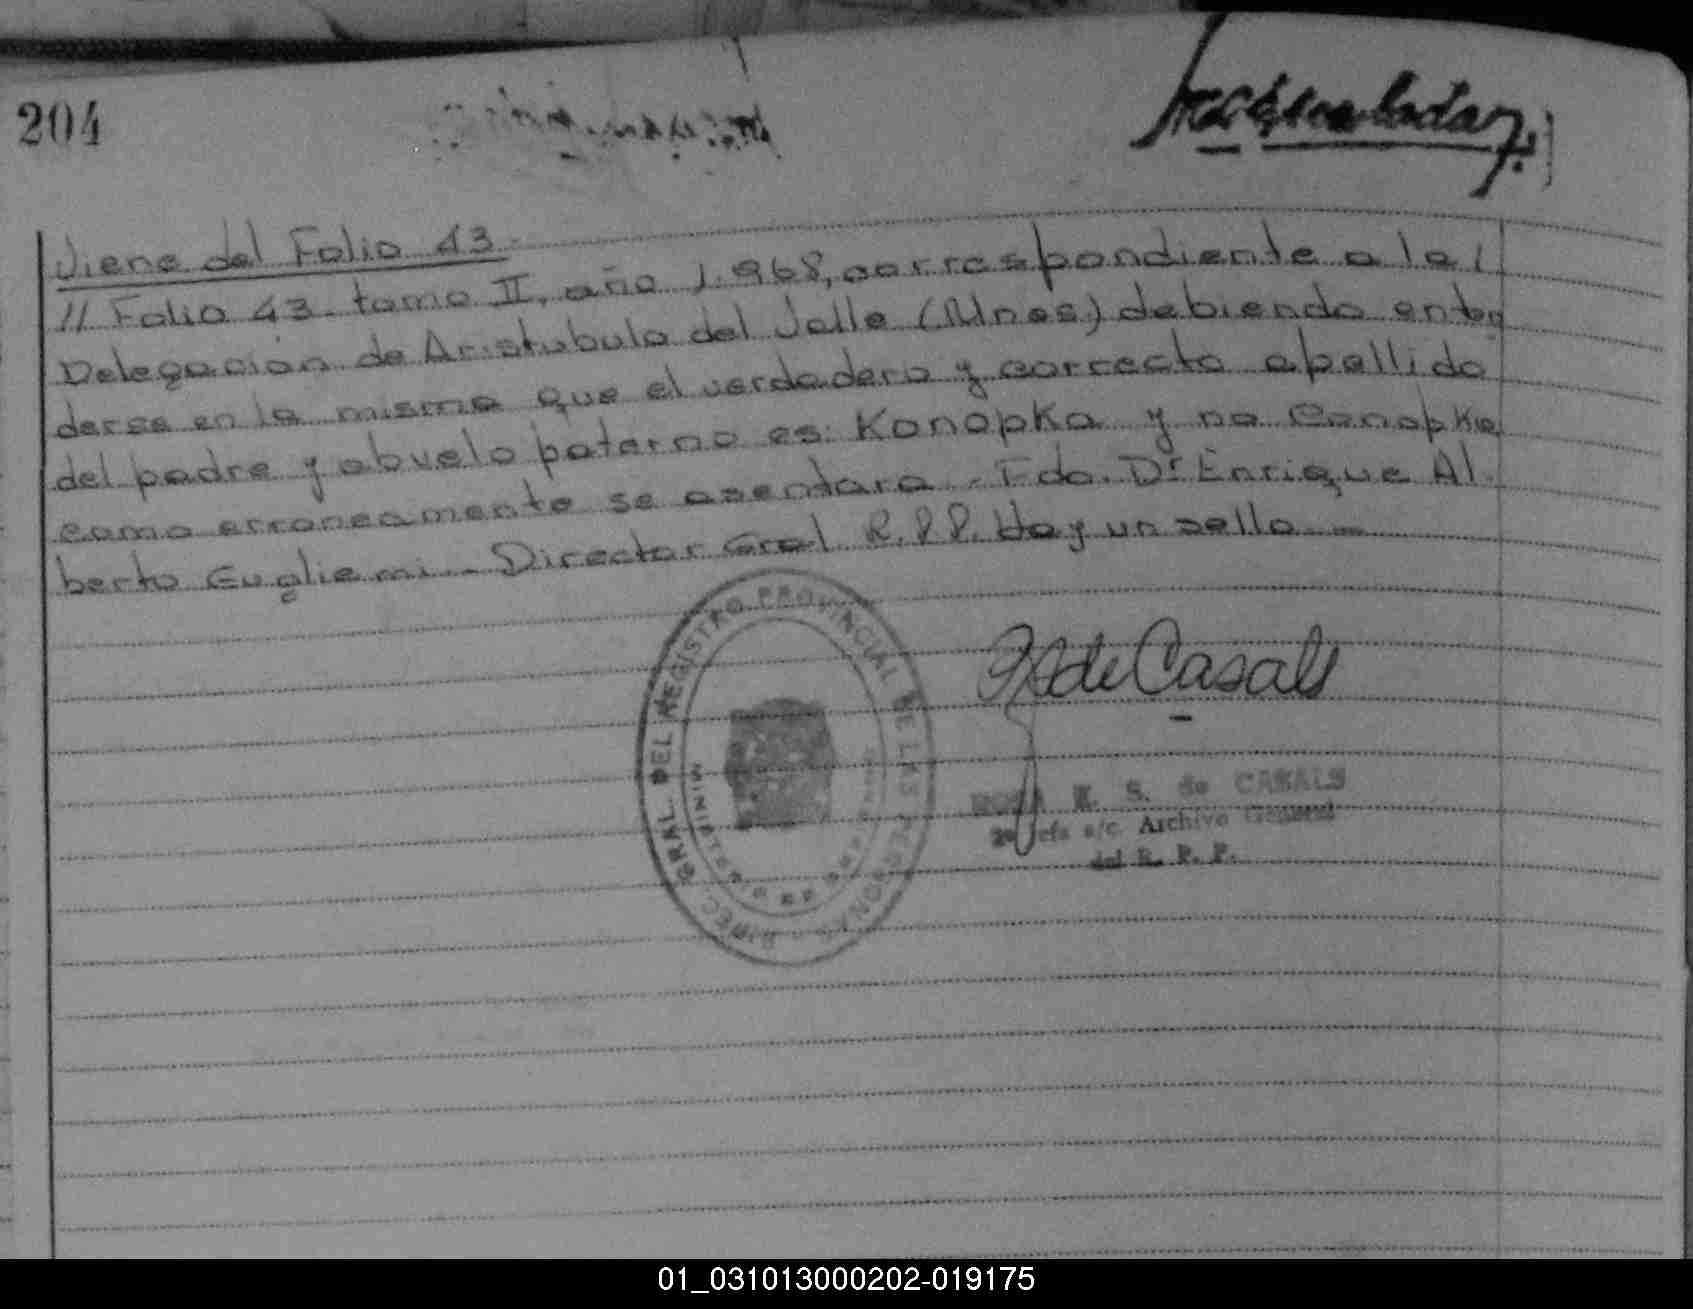 204
Viene del Folio 43.-
// Folio 43. tomo II, año 1.968, correspondiente a la /
Delegación de Aristubulo del Valle (Mnes) debiendo enten
derse en la misma que el verdadero y correcto apellido
del padre y abuelo paterno es: Konopka y no Conopka
como erroneamente se asentara.- Fdo. Dr Enrique Al-
berto Gugliemi.- Director Gral R.P.P. Hay un sello.-
DIREC. GRAL. DEL REGISTRO PROVINCIAL DE LAS PERSONAS
MINISTERIO DE
de Casals
ROSA K. S. de CASALS
2º Jefe a/c. Archivo General
del R. P. P.
01_031013000202-019175